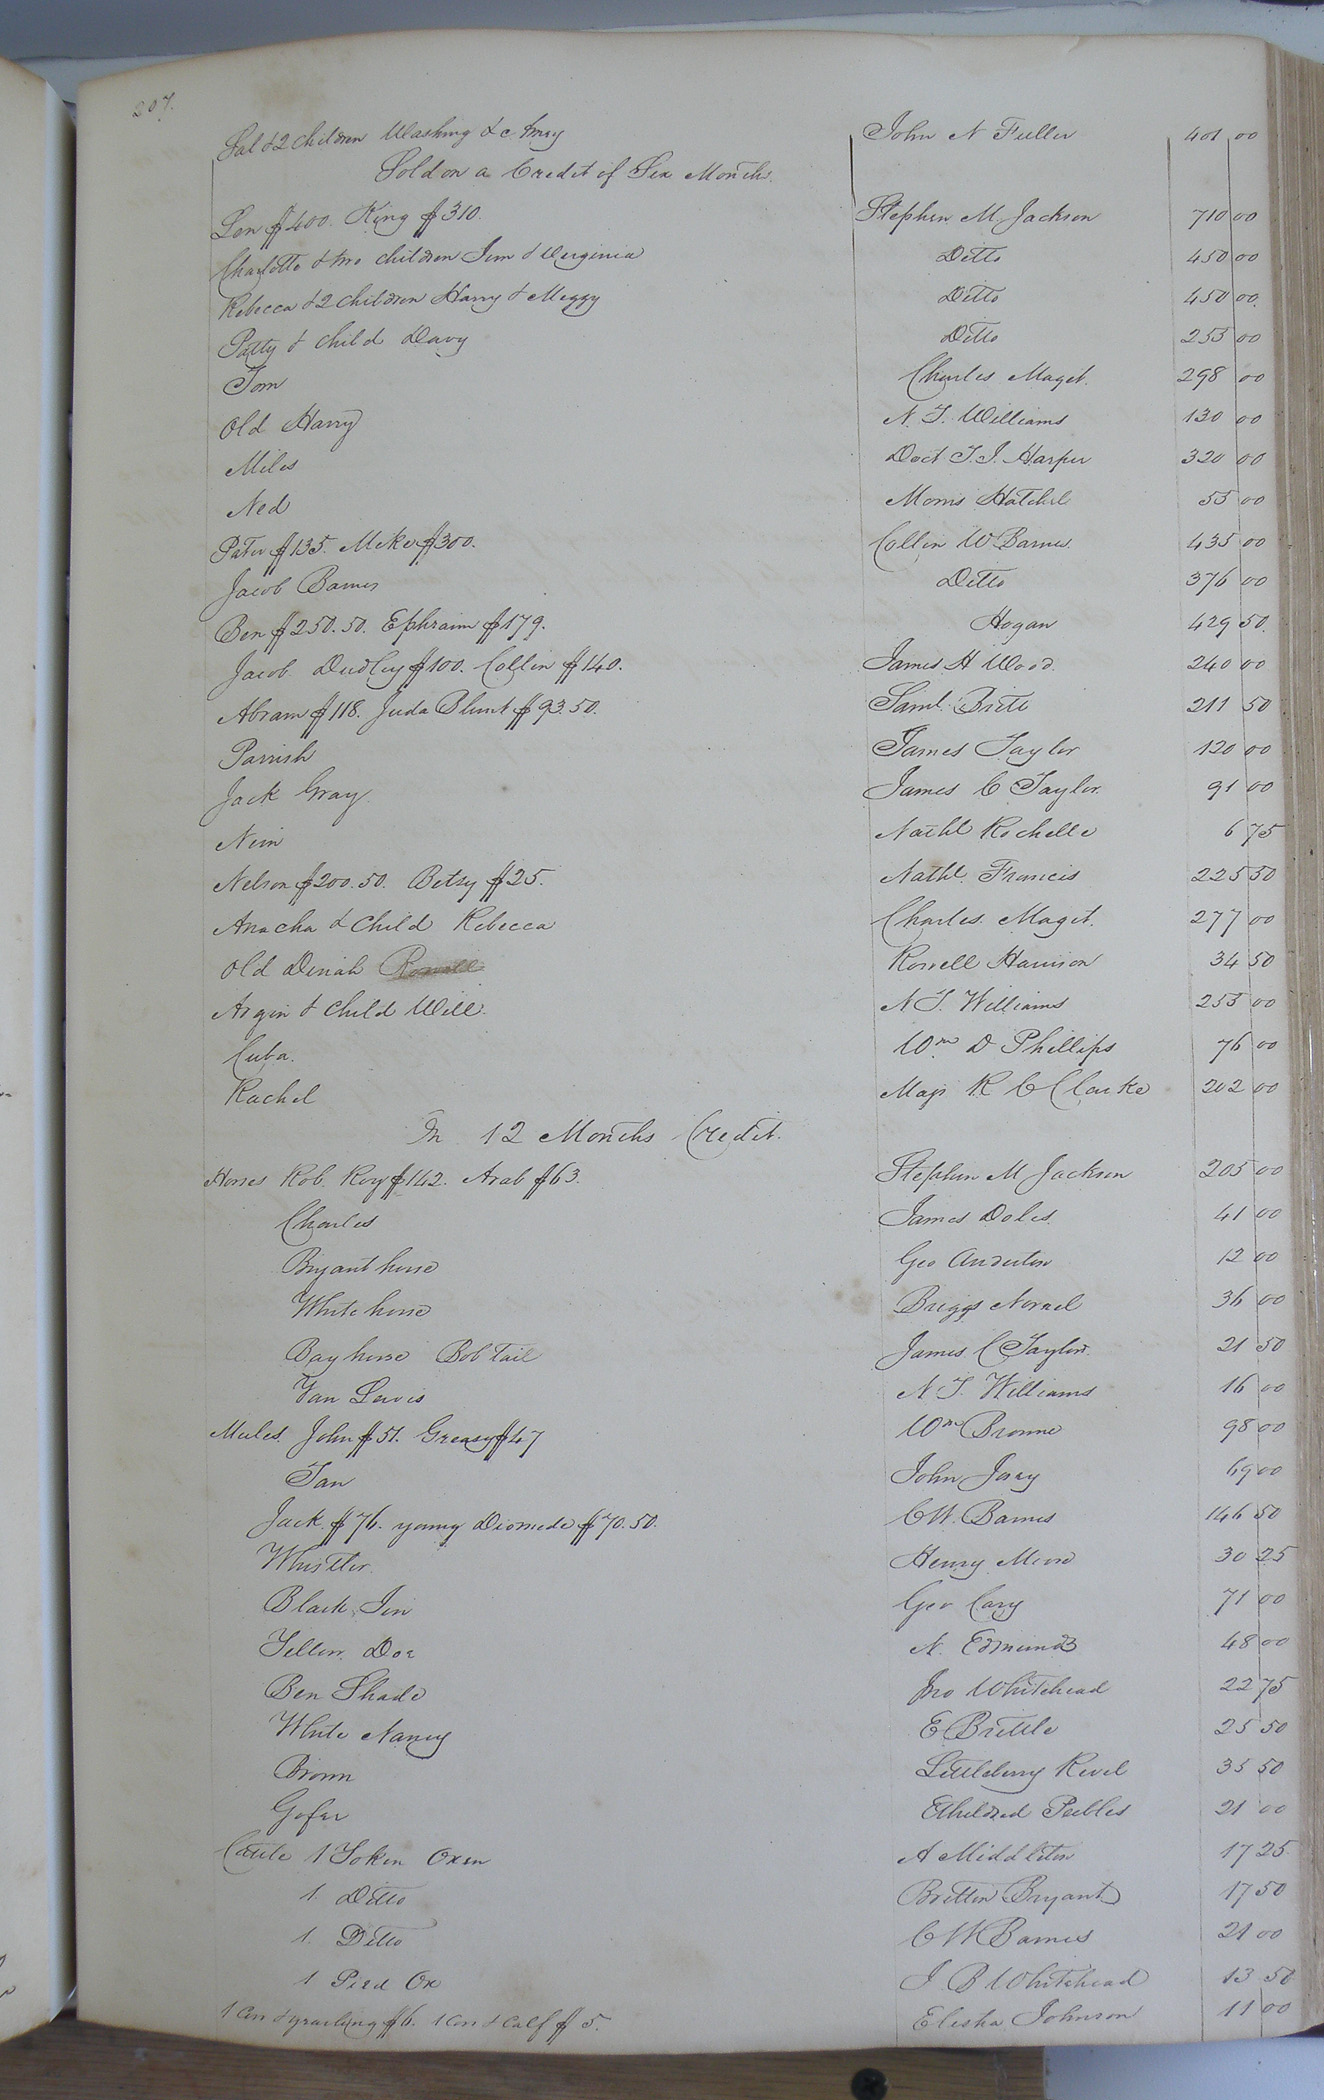 207.
Sal & 2 children Washing & c Amy John N Fuller 401 00
Sold on a Credit of Six Months.
Len $400. King $310. Stephen M. Jackson 710 00
Charlotte & two children Jim & Virginia Ditto 450 00
Rebecca & 2 children Harry & Meggy Ditto 450 00.
Patty & child Davy Ditto 255 00
Tom Charles Maget. 298 00
Old Harry N. T. Williams 130 00
Miles Doct T. I. Harper 320 00
Ned Morris 55 00
Peter $135. Mike $300. Collin W Barnes. 435 00
Jacob Barnes Ditto 376 00
Ben $250.50. Ephraim $179. Hogan 429 50.
Jacob Dudley $100. Collin $140. James H Wood. 240 00
Abram $118. Juda Blunt $93.50. Saml. Britt 211 50
Parrish James Taylor 120 00
Jack Gray. James C Taylor. 91 00
Nim Nathl Rochelle 6 75
Nelson $200.50. Betsy $25. Nathl. Francis 225 50
Anacha & Child Rebecca Charles Maget. 277 00
Old Dinah Rowell Harrison 34 50
Argin & Child Will. N T. Williams 255 00
Cuba. Wm. D Phillips 76 00
Rachel Maj R C Clarke 202 00
In 12 Months Credit.
Horses Rob. Roy $142. Arab $63. Stephen M Jackson 205 00
Charles James Doles. 41 00
Bryant horse Geo Anderton 12 00
White horse Briggs 36 00
Bay horse Bob Tail James C Taylor. 21 50
Van Lewis N T. Williams 16 00
Mules. John $51. Greasy $47 Wm Browne 98 00
Tan John Jary 69 00
Jack $76. young Diomede $70.50. C W. Barnes 146 50
Whistler. Henry Moore 30 25
Black Jin Geo Cary 71 00
Yellow Doe N. Edmunds 48 00
Ben Shade Jno Whitehead 22 75
White Nancy E Brittle 25 50
Brown Littleberry Revel 35 50
Gofer Etheldred Peebles 21 00
Cattle 1 Yoken Oxen A Middleton 17 25
1 Ditto Britton Bryant 17 50
1. Ditto C W Barnes 21 00
1 Pied Ox J B Whitehead 13 50
1 Cow & yearling $6. 1 Cow & Calf $5. Elisha Johnson 11 00